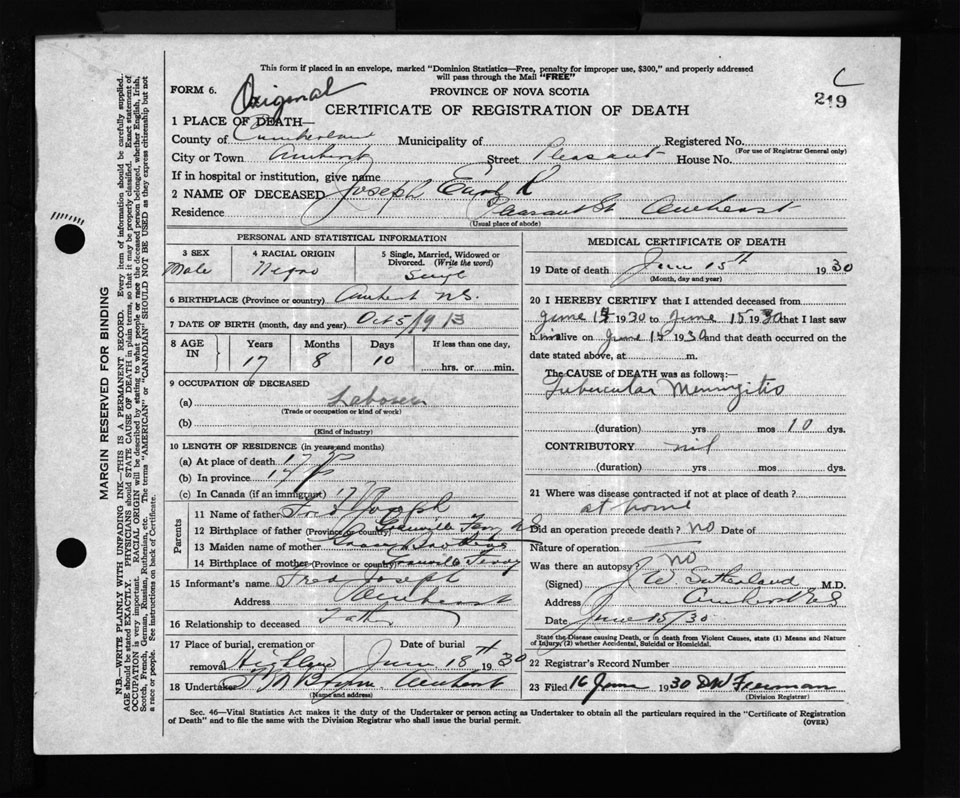 This form if placed in an envelope, marked "Dominion Statistics—Free, penalty for improper use, $300," and properly addressed
will pass through the Mail "FREE"
FORM 6. Original PROVINCE OF NOVA SCOTIA
219
CERTIFICATE OF REGISTRATION OF DEATH
1 PLACE OF DEATH—
County of Cumberland Municipality of Registered No.
(For use of Registrar General only)
City or Town Amherst Street Pleasant House No.
If in hospital or institution, give name
2 NAME OF DECEASED Joseph Earl R
Residence Pleasant St Amherst
(Usual place of abode)
PERSONAL AND STATISTICAL INFORMATION
3 SEX 4 RACIAL ORIGIN 5 Single, Married, Widowed or
Divorced. (Write the word)
Male Negro Single
6 BIRTHPLACE (Province or country) Amherst N.S.
7 DATE OF BIRTH (month, day and year) Oct 5/913
8 AGE IN Years Months Days If less than one day,
17 8 10 hrs. or min.
9 OCCUPATION OF DECEASED
(a) Laborer
(Trade or occupation or kind of work)
(b)
(Kind of industry)
10 LENGTH OF RESIDENCE (in years and months)
(a) At place of death 17
(b) In province 17
(c) In Canada (if an immigrant) 17
Parents
11 Name of father Fred Joseph
12 Birthplace of father (Province or country) Granville Ferry NS
13 Maiden name of mother
14 Birthplace of mother (Province or country) Granville Ferry
15 Informant's name Fred Joseph
Address Amherst
16 Relationship to deceased Father
17 Place of burial, cremation or Date of burial
removal Highland June 18th 1930
18 Undertaker Amherst
(Name and address)
MEDICAL CERTIFICATE OF DEATH
19 Date of death June 15th 1930
(Month, day and year)
20 I HEREBY CERTIFY that I attended deceased from
June 1930 to June 15 1930 that I last saw
him alive on June 15 1930 and that death occurred on the
date stated above, at m.
The CAUSE of DEATH was as follows:
Tubercular Meningitis
(duration) yrs mos 10 dys.
CONTRIBUTORY nil
(duration) yrs mos dys.
21 Where was disease contracted if not at place of death?
at home
Did an operation precede death? no Date of
Nature of operation
Was there an autopsy? no
(Signed) J W Sutherland M.D.
Address Amherst N.S.
Date June 15/30
State the Disease causing Death, or in death from Violent Causes, state (1) Means and Nature
of Injury, (2) whether Accidental, Suicidal or Homicidal.
22 Registrar's Record Number
23 Filed 16 June 1930 DW Freeman
(Division Registrar)
Sec. 46—Vital Statistics Act makes it the duty of the Undertaker or person acting as Undertaker to obtain all the particulars required in the "Certificate of Registration
of Death" and to file the same with the Division Registrar who shall issue the burial permit.
(OVER)
MARGIN RESERVED FOR BINDING
N.B.—WRITE PLAINLY WITH UNFADING INK—THIS IS A PERMANENT RECORD. Every item of information should be carefully supplied.
AGE should be stated EXACTLY. PHYSICIANS should STATE CAUSE OF DEATH in plain terms, so that it may be properly classified. Exact statement of
OCCUPATION is very important. RACIAL ORIGIN will be described by stating to what people or race the deceased person belonged, whether English, Irish,
Scotch, French, German, Russian, Ruthenian, etc. The terms "AMERICAN" or "CANADIAN" SHOULD NOT BE USED as they express citizenship but not
a race or people. See instructions on back of Certificate.